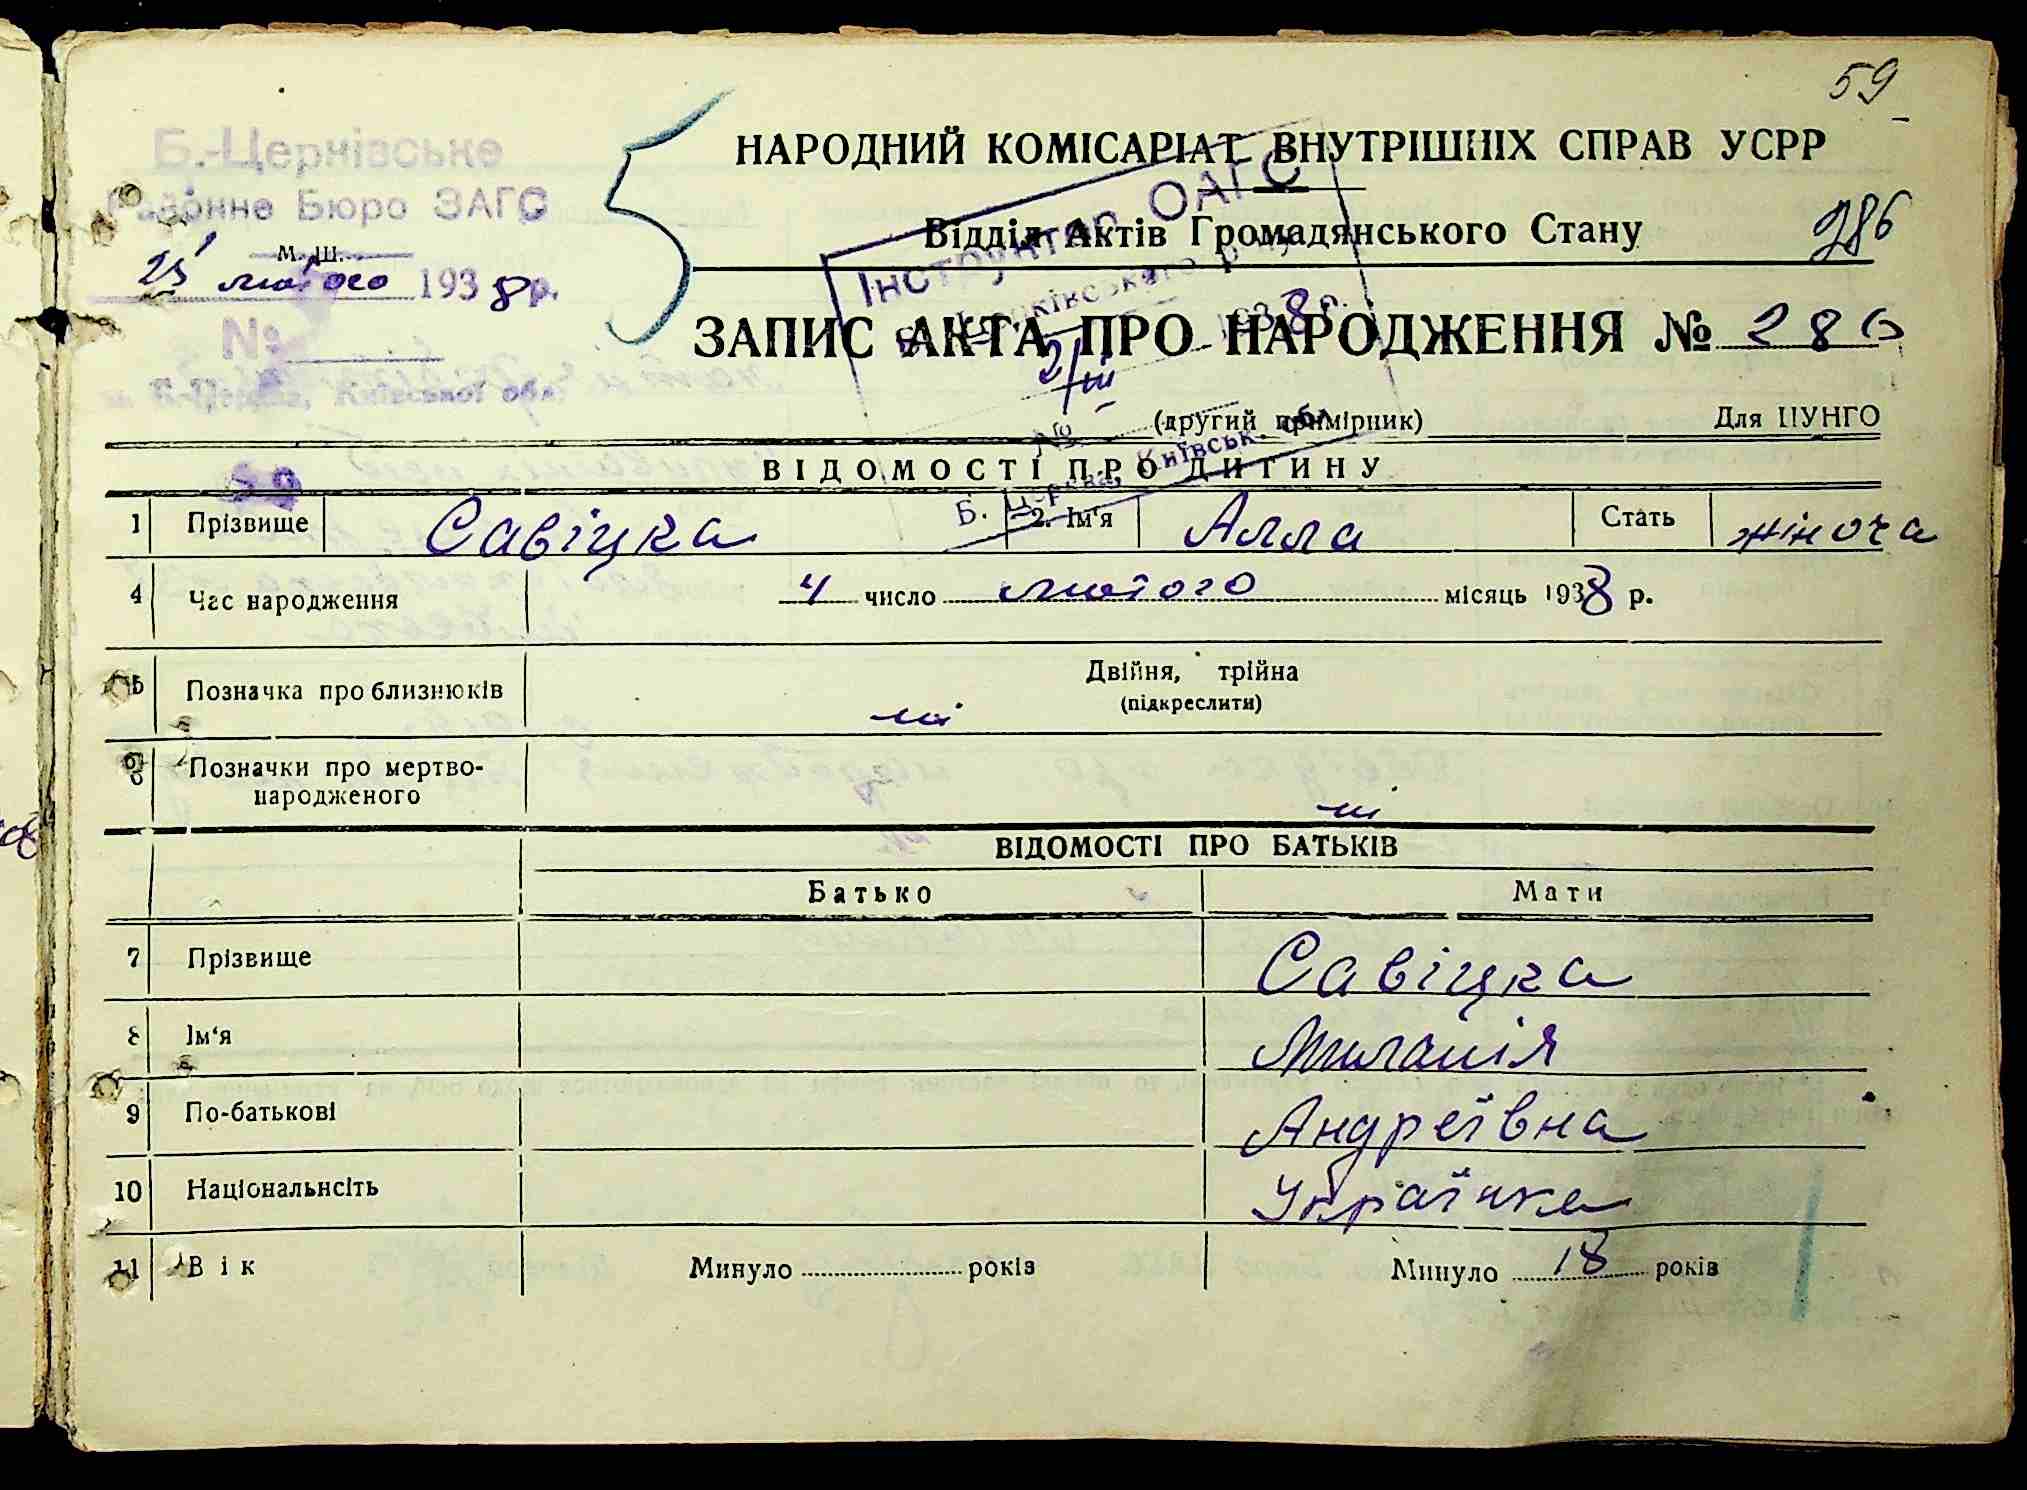 59
Б.-Церківське
Районне Бюро ЗАГС
м. Ш.
25 лютого 1938 р.
№
м. Б-Церква, Київської обл.
НАРОДНИЙ КОМІСАРІАТ ВНУТРІШНІХ СПРАВ УСРР
Відділ Актів Громадянського Стану
286
Інструктор ОАГС
1938 р.
2/III
№
Б. Церква, Київськ. обл.
ЗАПИС АКТА ПРО НАРОДЖЕННЯ № 286
(другий примірник) Для ЦУНГО
ВІДОМОСТІ ПРО ДИТИНУ
1 Прізвище Савіцка 2. Ім'я Алла Стать жіноча
4 Час народження 4 число лютого місяць 1938 р.
5 Позначка про близнюків Двійня, трійна
(підкреслити)
ні
6 Позначки про мертво-
народженого ні
ВІДОМОСТІ ПРО БАТЬКІВ
Батько Мати
7 Прізвище Савіцка
8 Ім'я Миланія
9 По-батькові Андреївна
10 Національнсіть Українка
11 Вік Минуло років Минуло 18 років